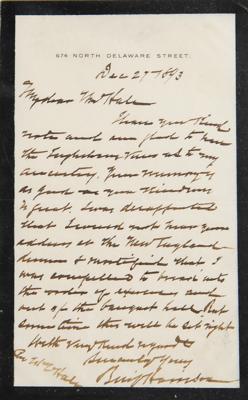 674 NORTH DELAWARE STREET.
Dec 27 1893
My dear Mr Hale
I have your kind
note and am glad to have
the
ancestry. Your memory is
as good as your kindness
is great. I was disappointed
that I could not hear your
address at the New England
dinner & mortified that I
was compelled to break into
the order of exercises and
out of the banquet hall. But
sometime this will be set right
With very kind regards
Sincerely yours
Benj Harrison
Hale